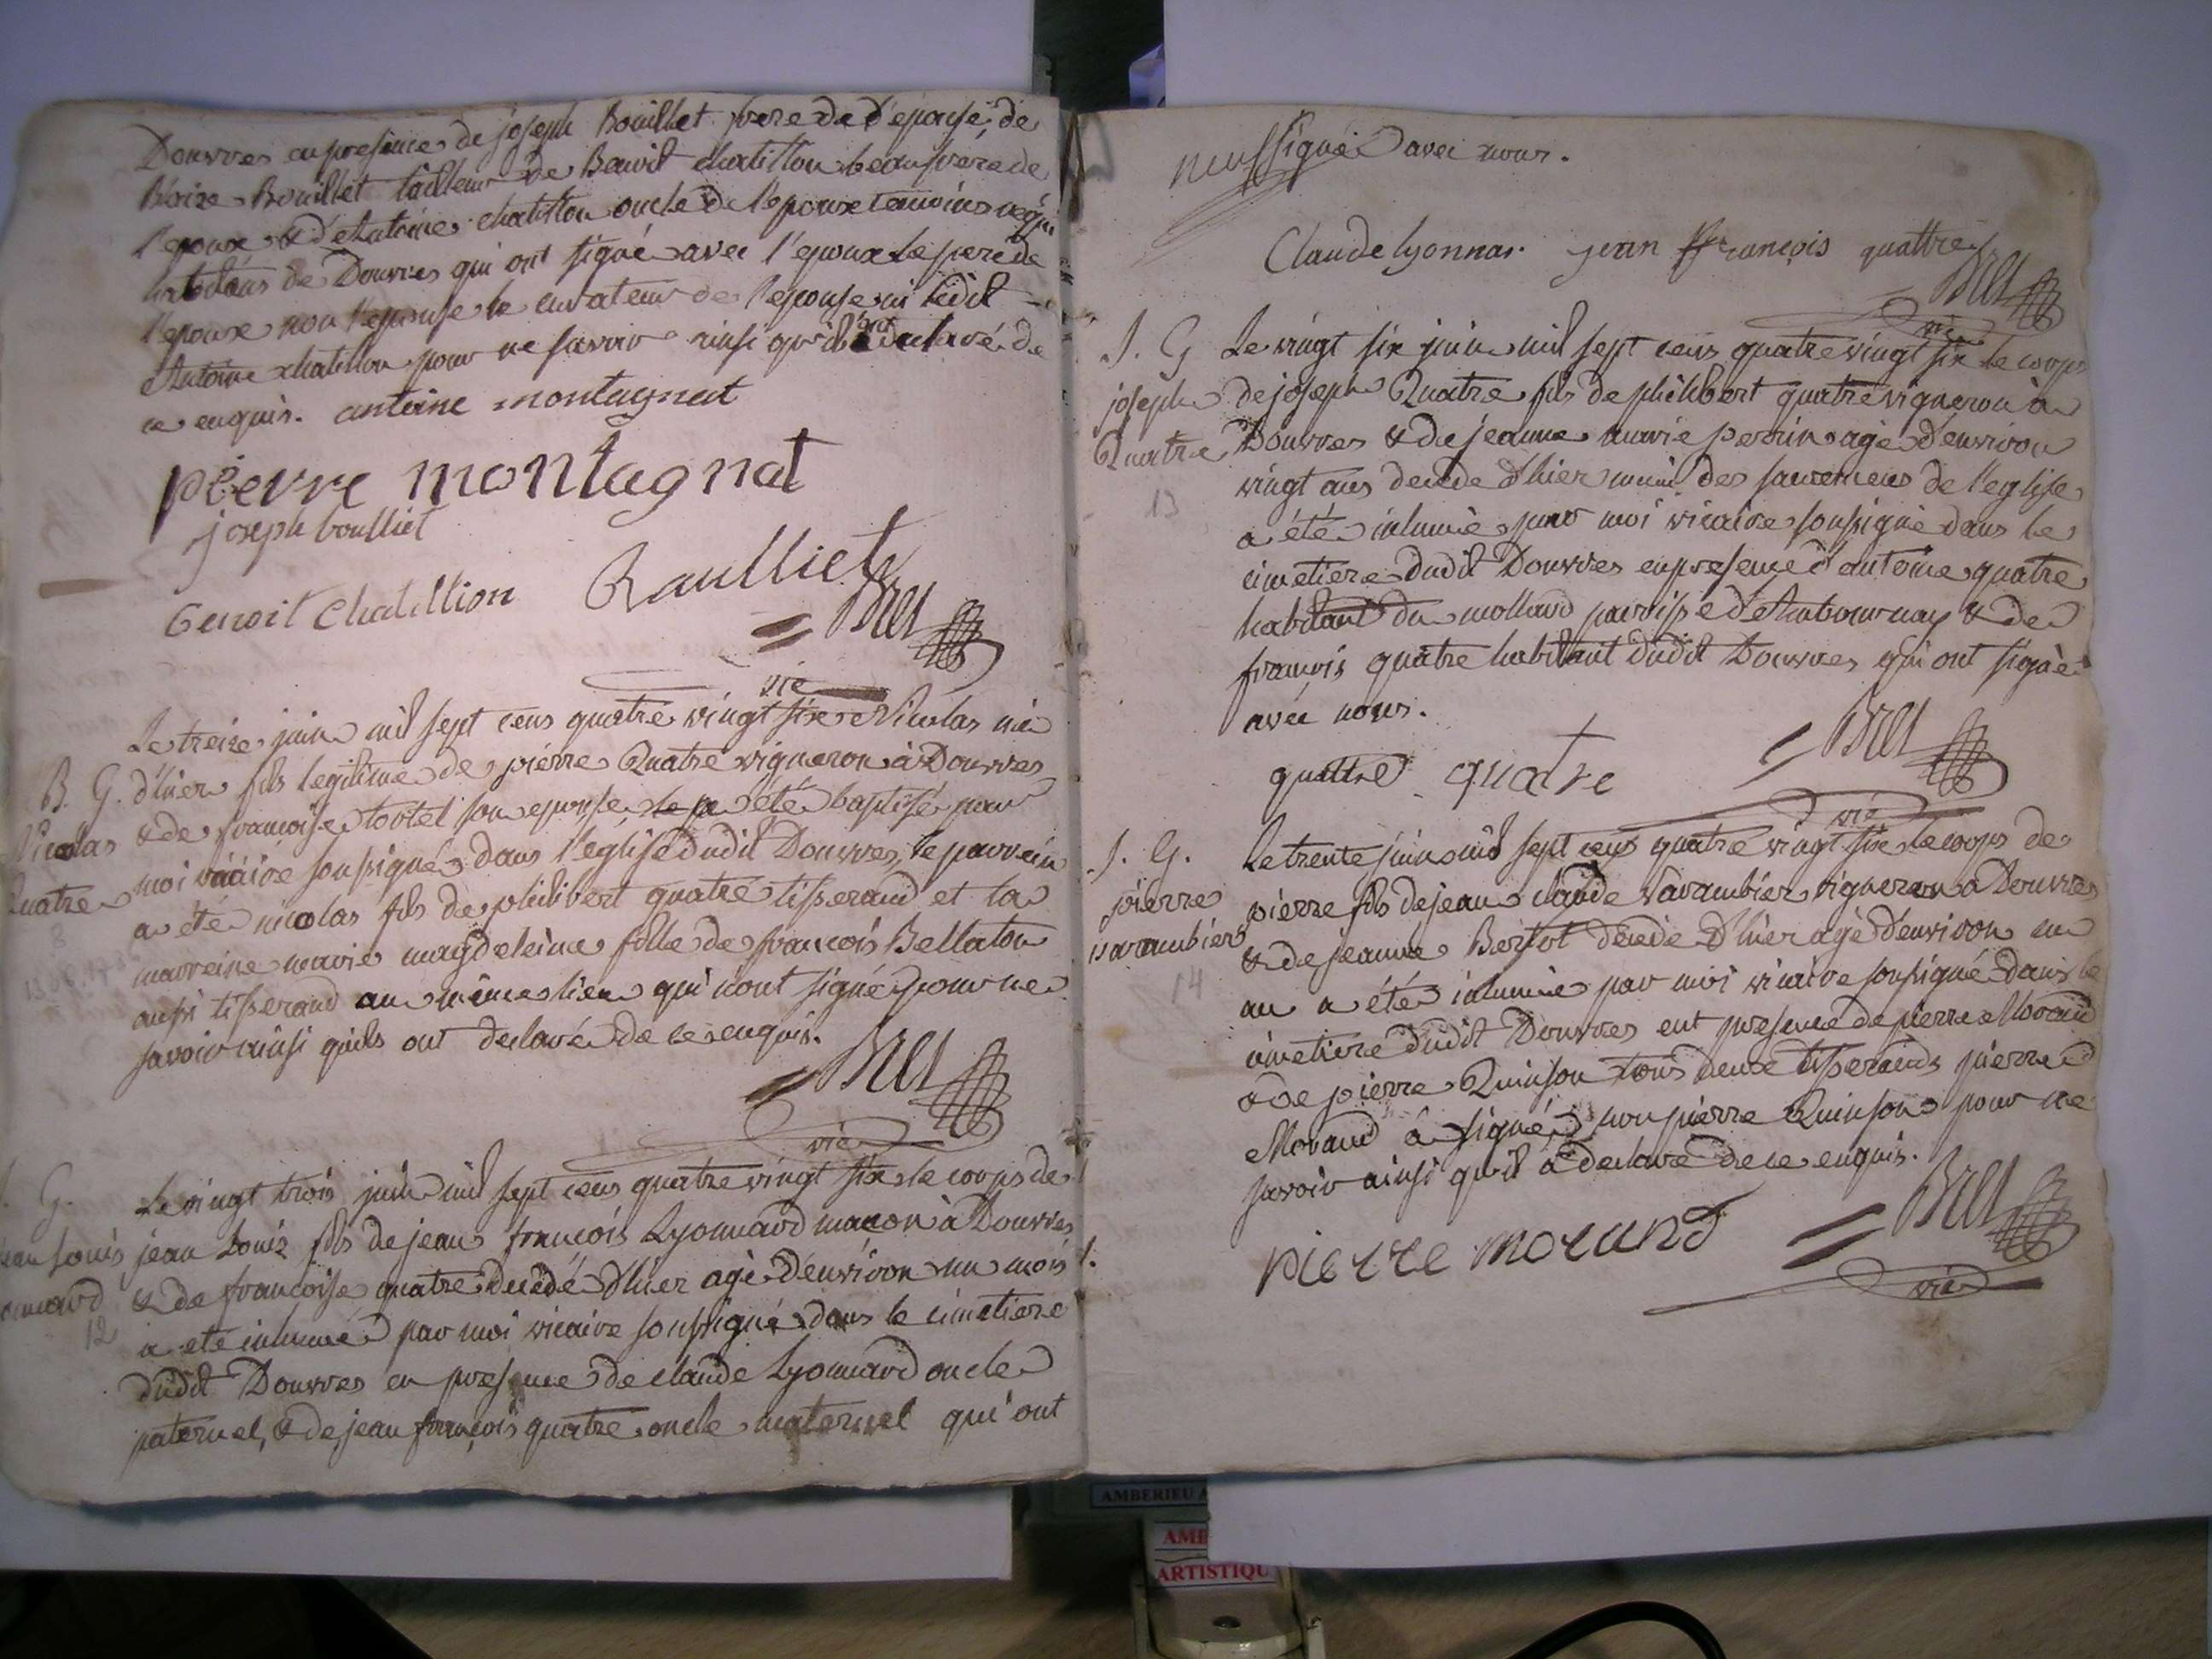 Douvres en presence de joseph Bouillet frere de l'epouse, de
Blaise Bouillet tailleur de Benoit chatillon beaufrere de
l'epoux & d'Antoine chatillon oncle de l'epoux temoins requis
habitans de Douvres qui ont signé avec l'epoux le pere de
l'epoux non l'epouse le curateur de l'epouse ni ledit
Antoine chatillon pour ne savoir ainsi qu'ils ont declaré de
ce enquis. antoine montagnat
pierre montagnat
joseph boulliet
Benoit Chatillion Boulliet
= Bret
vic
Le treize juin mil sept cens quatre vingt six Nicolas né
B. G. d'hier fils legitime de pierre Quatre vigneron à Douvres
Nicolas & de françoise tortel son epouse, a été baptisé par
Quatre moi vicaire soussigné dans l'eglise dudit Douvres, le parrein
8 a été nicolas fils de philibert quatre tisserand et la
marreine marie magdeleine fille de françois Bellaton
aussi tisserand au même lieu qui n'ont signé pour ne
savoir ainsi quils ont declaré de ce enquis.
= Bret
vic
G. Le vingt trois juin mil sept cens quatre vingt six le corps de
jean Louis jean Louis fils de jean françois Lyonnard maçon à Douvres
& de françoise quatre decedé d'hier agé d'environ un mois
12 a eté inhumé par moi vicaire soussigné dans le cimetiere
dudit Douvres en presence de claude Lyonnard oncle
paternel, & de jean françois quatre oncle maternel qui ont
signé avec nous.
Claude lyonnar. jean françois quattre
= Bret
vic
S. G Le vingt six juin mil sept cens quatre vingt six le corps
joseph de joseph Quatre fils de philibert quatre vigneron à
Quatre Douvres & de jeanne marie perrin agé d'environ
13 vingt ans decedé d'hier muni des sacremens de l'eglise
a été inhumé par moi vicaire soussigné dans le
cimetiere dudit Douvres en presence d'antoine quatre
habitant du mollard parroisse d'Ambournay & de
françois quatre habitant dudit Douvres qui ont signé
avec nous.
quattre quatre = Bret
vic
S. G. Le trente juin mil sept cens quatre vingt six le corps de
pierre pierre fils de jean claude varambier vigneron à Douvres
varambier & de jeanne Berfot decedé d'hier agé d'environ un
14 an a été inhumé par moi vicaire soussigné dans le
cimetiere dudit Douvres ent presence de pierre Morand
& de pierre Quinson tous deux tisserands pierre
Morand à signé, non pierre Quinson pour ne
savoir ainsi qu'il à declaré de ce enquis.
pierre morand = Bret
vic
AMBERIEU
ARTISTIQU